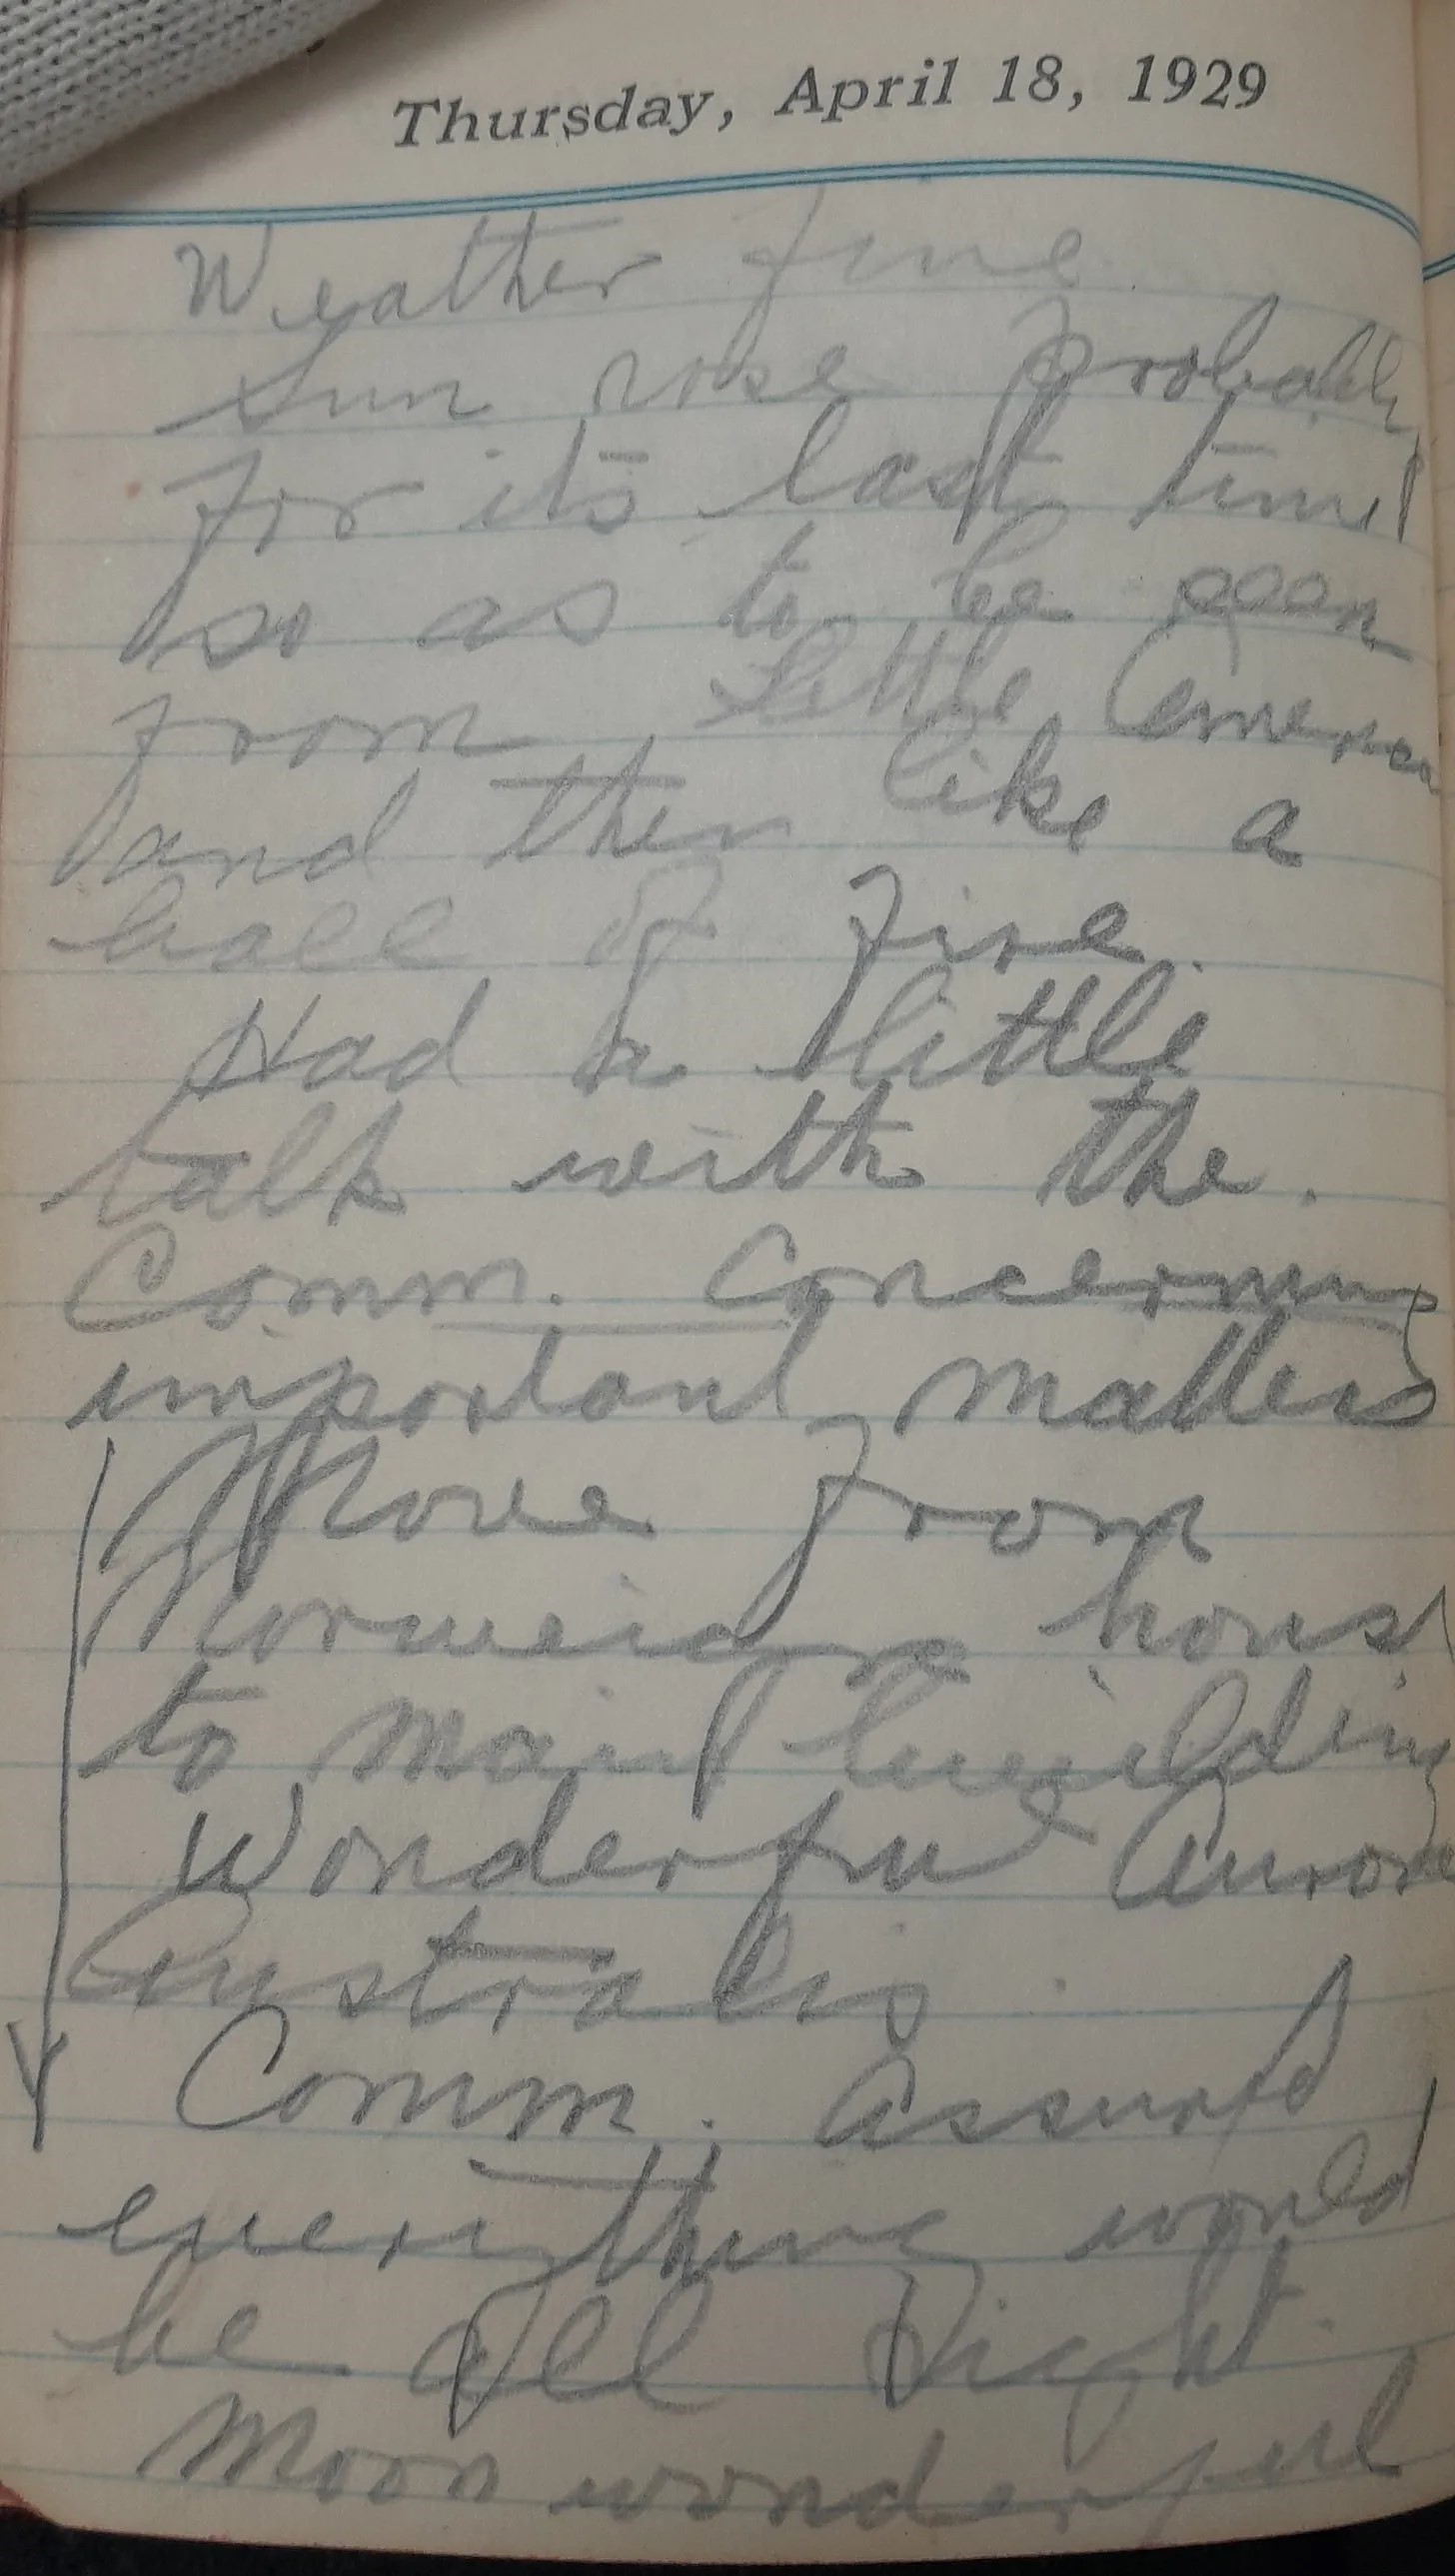 Thursday, April 18, 1929
Weather fine
Sun rose probably
for its last time
so as to be seen
from Little America
and then like a
ball of fire.
Had a little
talk with the.
Comm. Concerning
important matters
Move from
Norweida house
to main building
Wonderful Aurora
Australis.
Comm. assured
everything would
be all right.
Moon wonderful